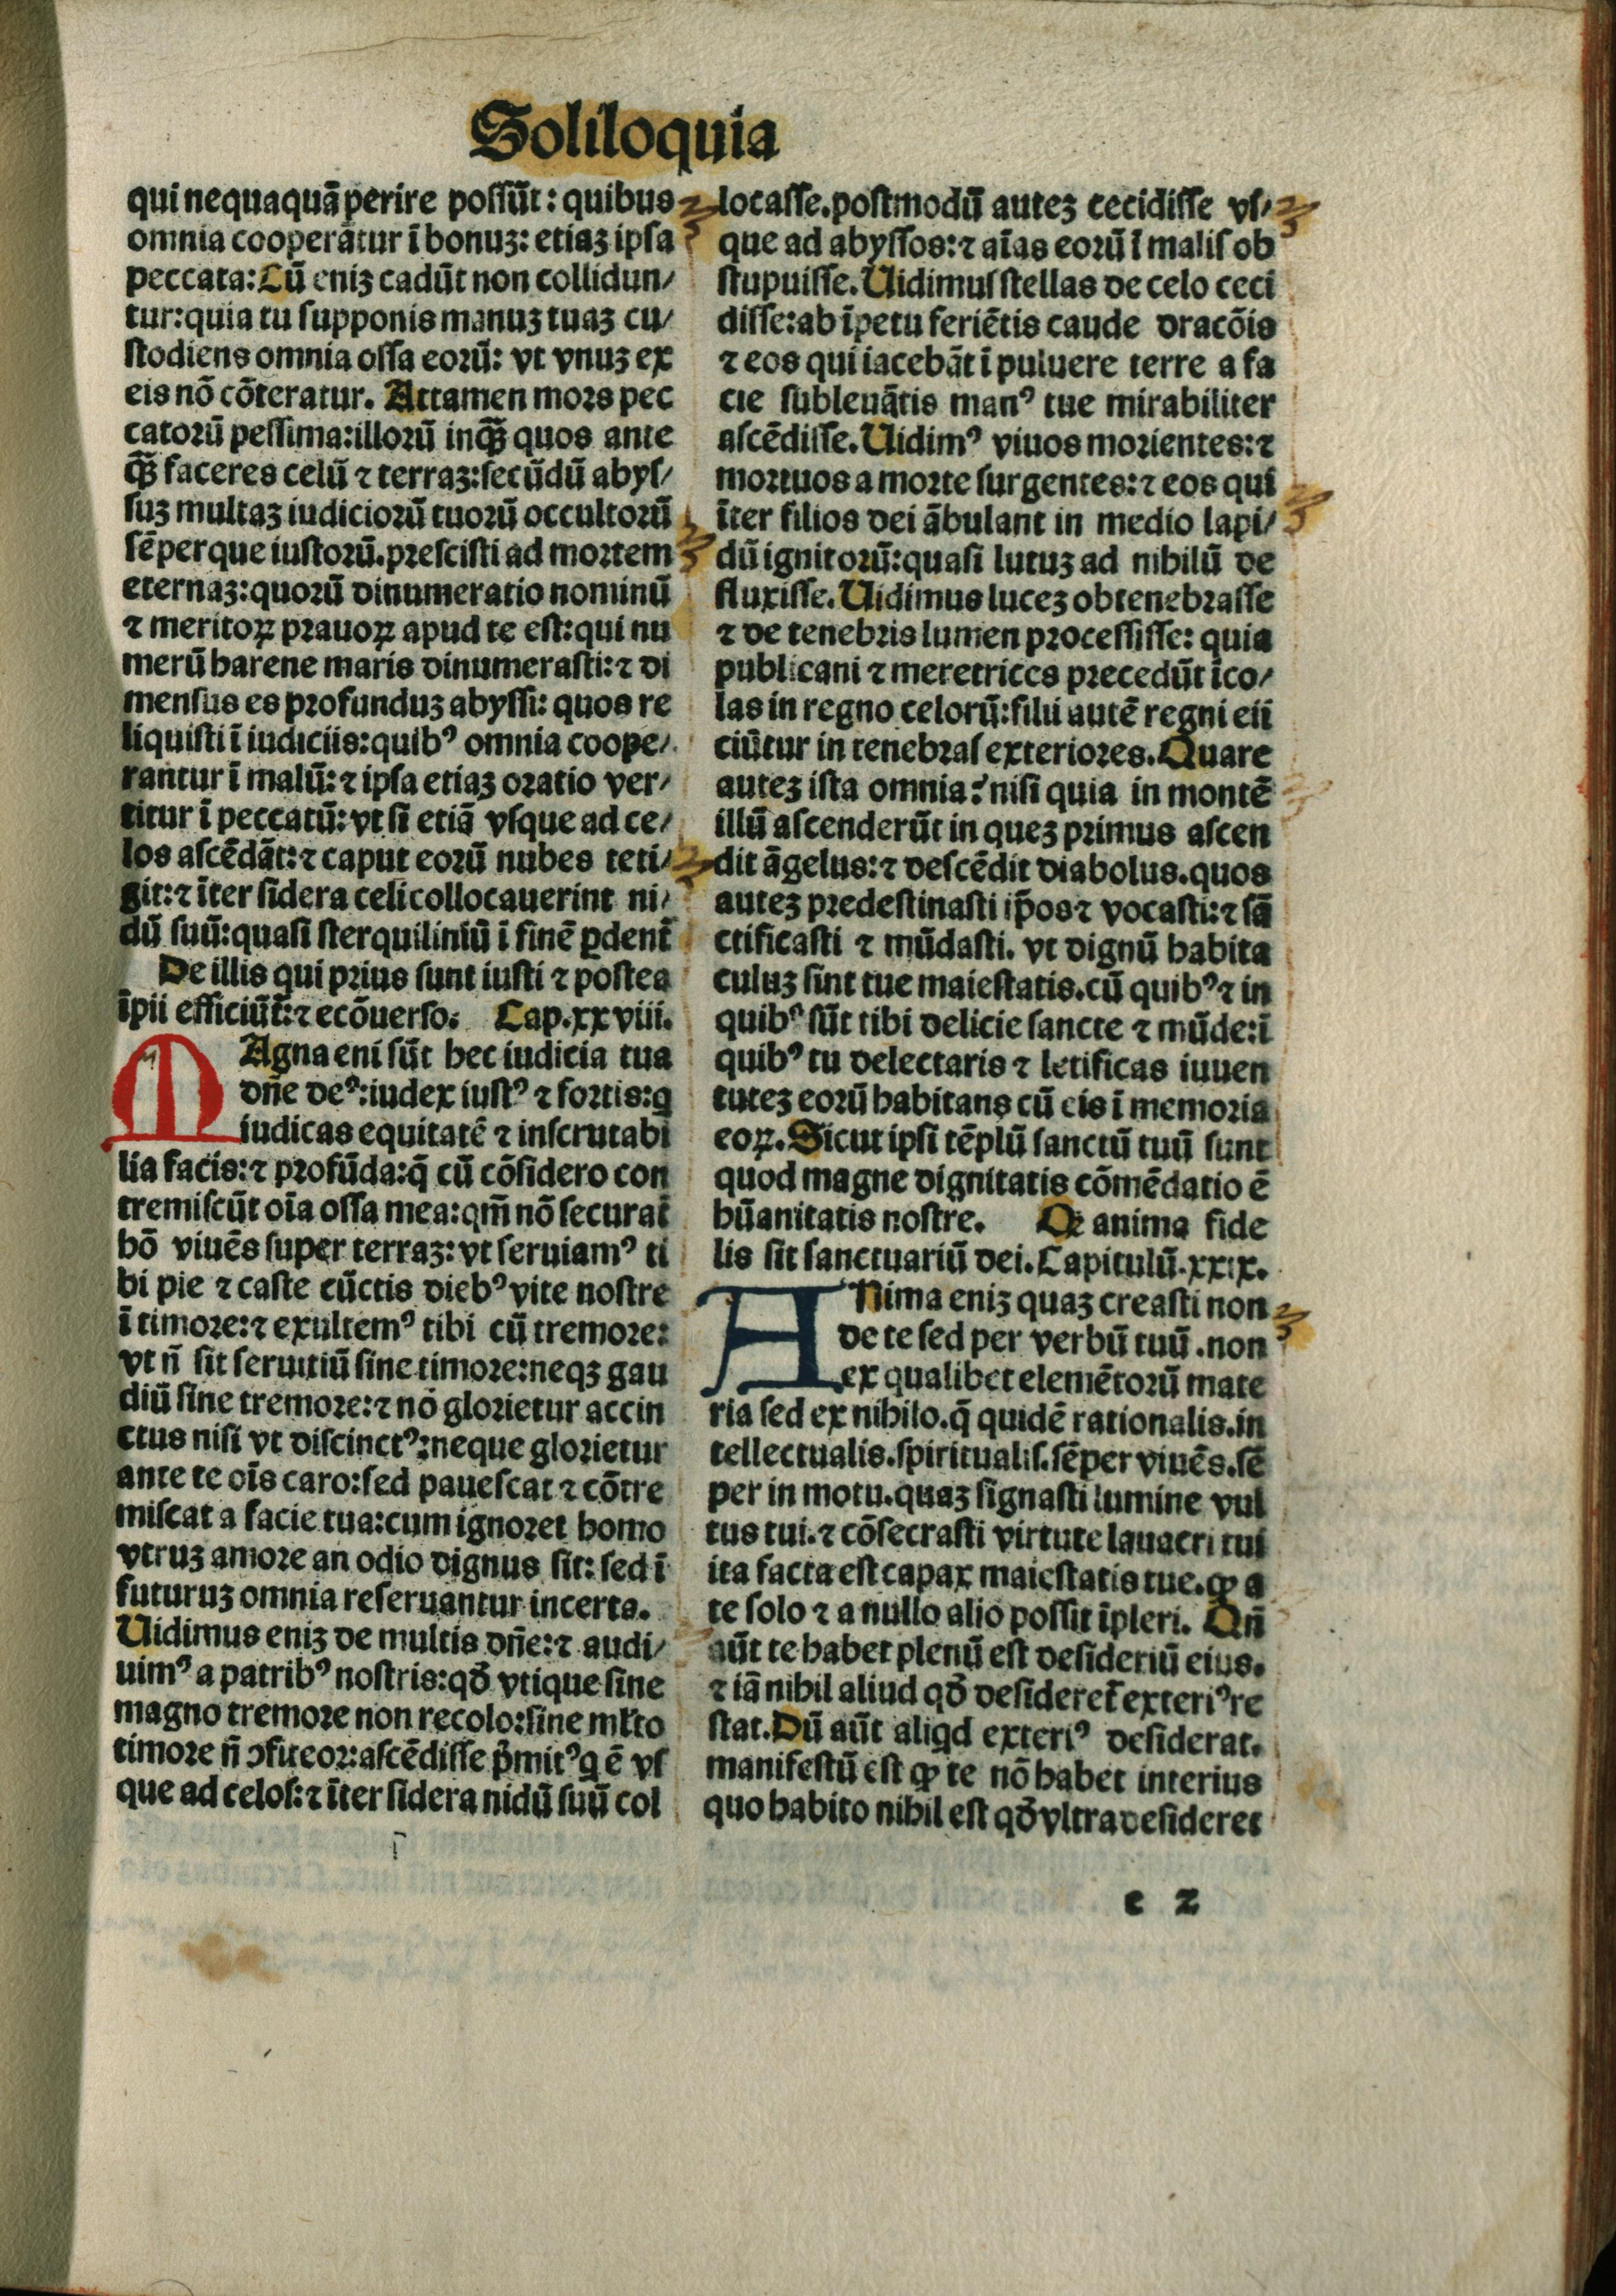 Soliloquia
qui nequaquā perire possūt: quibus
omnia cooperātur ī bonuꝫ: etiaꝫ ipsa
peccata: Cū eniꝫ cadūt non collidun/
tur: quia tu supponis manuꝫ tuaꝫ cu/
stodiens omnia ossa eorū: vt vnuꝫ ex
eis nō cōteratur. Attamen mors pec
catorū pessima: illorū inqꝫ̄ quos ante
qꝫ̄ faceres celū ⁊ terraꝫ: secūdū abys/
suꝫ multaꝫ iudiciorū tuorū occultorū
sēperque iustorū. prescisti ad mortem
eternaꝫ: quorū dinumeratio nominū
⁊ meritoꝝ prauoꝝ apud te est: qui nu
merū harene maris dinumerasti: ⁊ di
mensus es profunduꝫ abyssi: quos re
liquisti ī iudiciis: quibꝰ omnia coope/
rantur ī malū: ⁊ ipsa etiaꝫ oratio ver/
titur ī peccatū: vt si etiā vsque ad ce/
los ascēdāt: ⁊ caput eorū nubes teti/
git: ⁊ īter sidera celi collocauerint ni/
dū suū: quasi sterquiliniū ī finē ꝑdent̄
De illis qui prius sunt iusti ⁊ postea
īpii efficiūt̄: ⁊ ecōuerso. Cap. xxviii.
MAgna eni sūt hec iudicia tua
dn̄e deꝰ: iudex iustꝰ ⁊ fortis: q
iudicas equitatē ⁊ inscrutabi
lia facis: ⁊ profūda: q̄ cū cōsidero con
tremiscūt oīa ossa mea: qm̄ nō securat̄
hō viuēs super terraꝫ: vt seruiamꝰ ti
bi pie ⁊ caste cūctis diebꝰ vite nostre
ī timore: ⁊ exultemꝰ tibi cū tremore:
vt n̄ sit seruitiū sine timore: neqꝫ gau
diū sine tremore: ⁊ nō glorietur accin
ctus nisi vt discinctꝰ: neque glorietur
ante te oīs caro: sed pauescat ⁊ cōtre
miscat a facie tua: cum ignoret homo
vtruꝫ amore an odio dignus sit: sed ī
futuruꝫ omnia reseruantur incerta.
Uidimus eniꝫ de multis dn̄e: ⁊ audi/
uimꝰ a patribꝰ nostris: qð vtique sine
magno tremore non recolo: sine ml̄to
timore n̄ ꝯfiteor: ascēdisse p̄mitꝰ q ē vs
que ad celos: ⁊ īter sidera nidū suū col
locasse. postmodū auteꝫ cecidisse vs/
que ad abyssos: ⁊ aīas eorū ī malis ob
stupuisse. Uidimus stellas de celo ceci
disse: ab īpetu feriētis caude dracōis
⁊ eos qui iacebāt ī puluere terre a fa
cie subleuātis manꝰ tue mirabiliter
ascēdisse. Uidimꝰ viuos morientes: ⁊
mortuos a morte surgentes: ⁊ eos qui
īter filios dei ābulant in medio lapi/
dū ignitorū: quasi lutuꝫ ad nihilū de
fluxisse. Uidimus luceꝫ obtenebrasse
⁊ de tenebris lumen processisse: quia
publicani ⁊ meretrices precedūt īco/
las in regno celorū: filii autē regni eii
ciūtur in tenebras exteriores. Quare
auteꝫ ista omnia? nisi quia in montē
illū ascenderūt in queꝫ primus ascen
dit āgelus: ⁊ descēdit diabolus. quos
auteꝫ predestinasti ip̄os ⁊ vocasti: ⁊ sā
ctificasti ⁊ mūdasti. vt dignū habita
culuꝫ sint tue maiestatis. cū quibꝰ ⁊ in
quibꝰ sūt tibi delicie sancte ⁊ mūde: ī
quibꝰ tu delectaris ⁊ letificas iuuen
tuteꝫ eorū habitans cū eis ī memoria
eoꝝ. Sicut ipsi tēplū sanctū tuū sunt
quod magne dignitatis cōmēdatio ē
hūanitatis nostre. Qꝫ anima fide
lis sit sanctuariū dei. Capitulū. xxix.
ANima eniꝫ quaꝫ creasti non
de te sed per verbū tuū. non
ex qualibet elemētorū mate
ria sed ex nihilo. q̄ quidē rationalis. in
tellectualis. spiritualis. sēper viuēs. sē
per in motu. quaꝫ signasti lumine vul
tus tui. ⁊ cōsecrasti virtute lauacri tui
ita facta est capax maiestatis tue. ꝙ a
te solo ⁊ a nullo alio possit īpleri. Qn̄
aūt te habet plenū est desideriū eius.
⁊ iā nihil aliud qð desideret̄ exteriꝰ re
stat. Dū aūt aliqd exteriꝰ desiderat.
manifestū est ꝙ te nō habet interius
quo habito nihil est qð vltra desideret
c 2